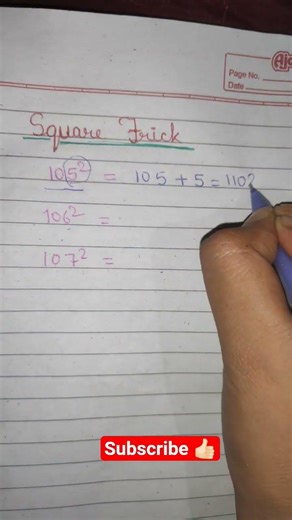 Page No.
Date
Square Trick
105² = 105 + 5 = 1102
106² =
107² =
Subscribe 👍🏻